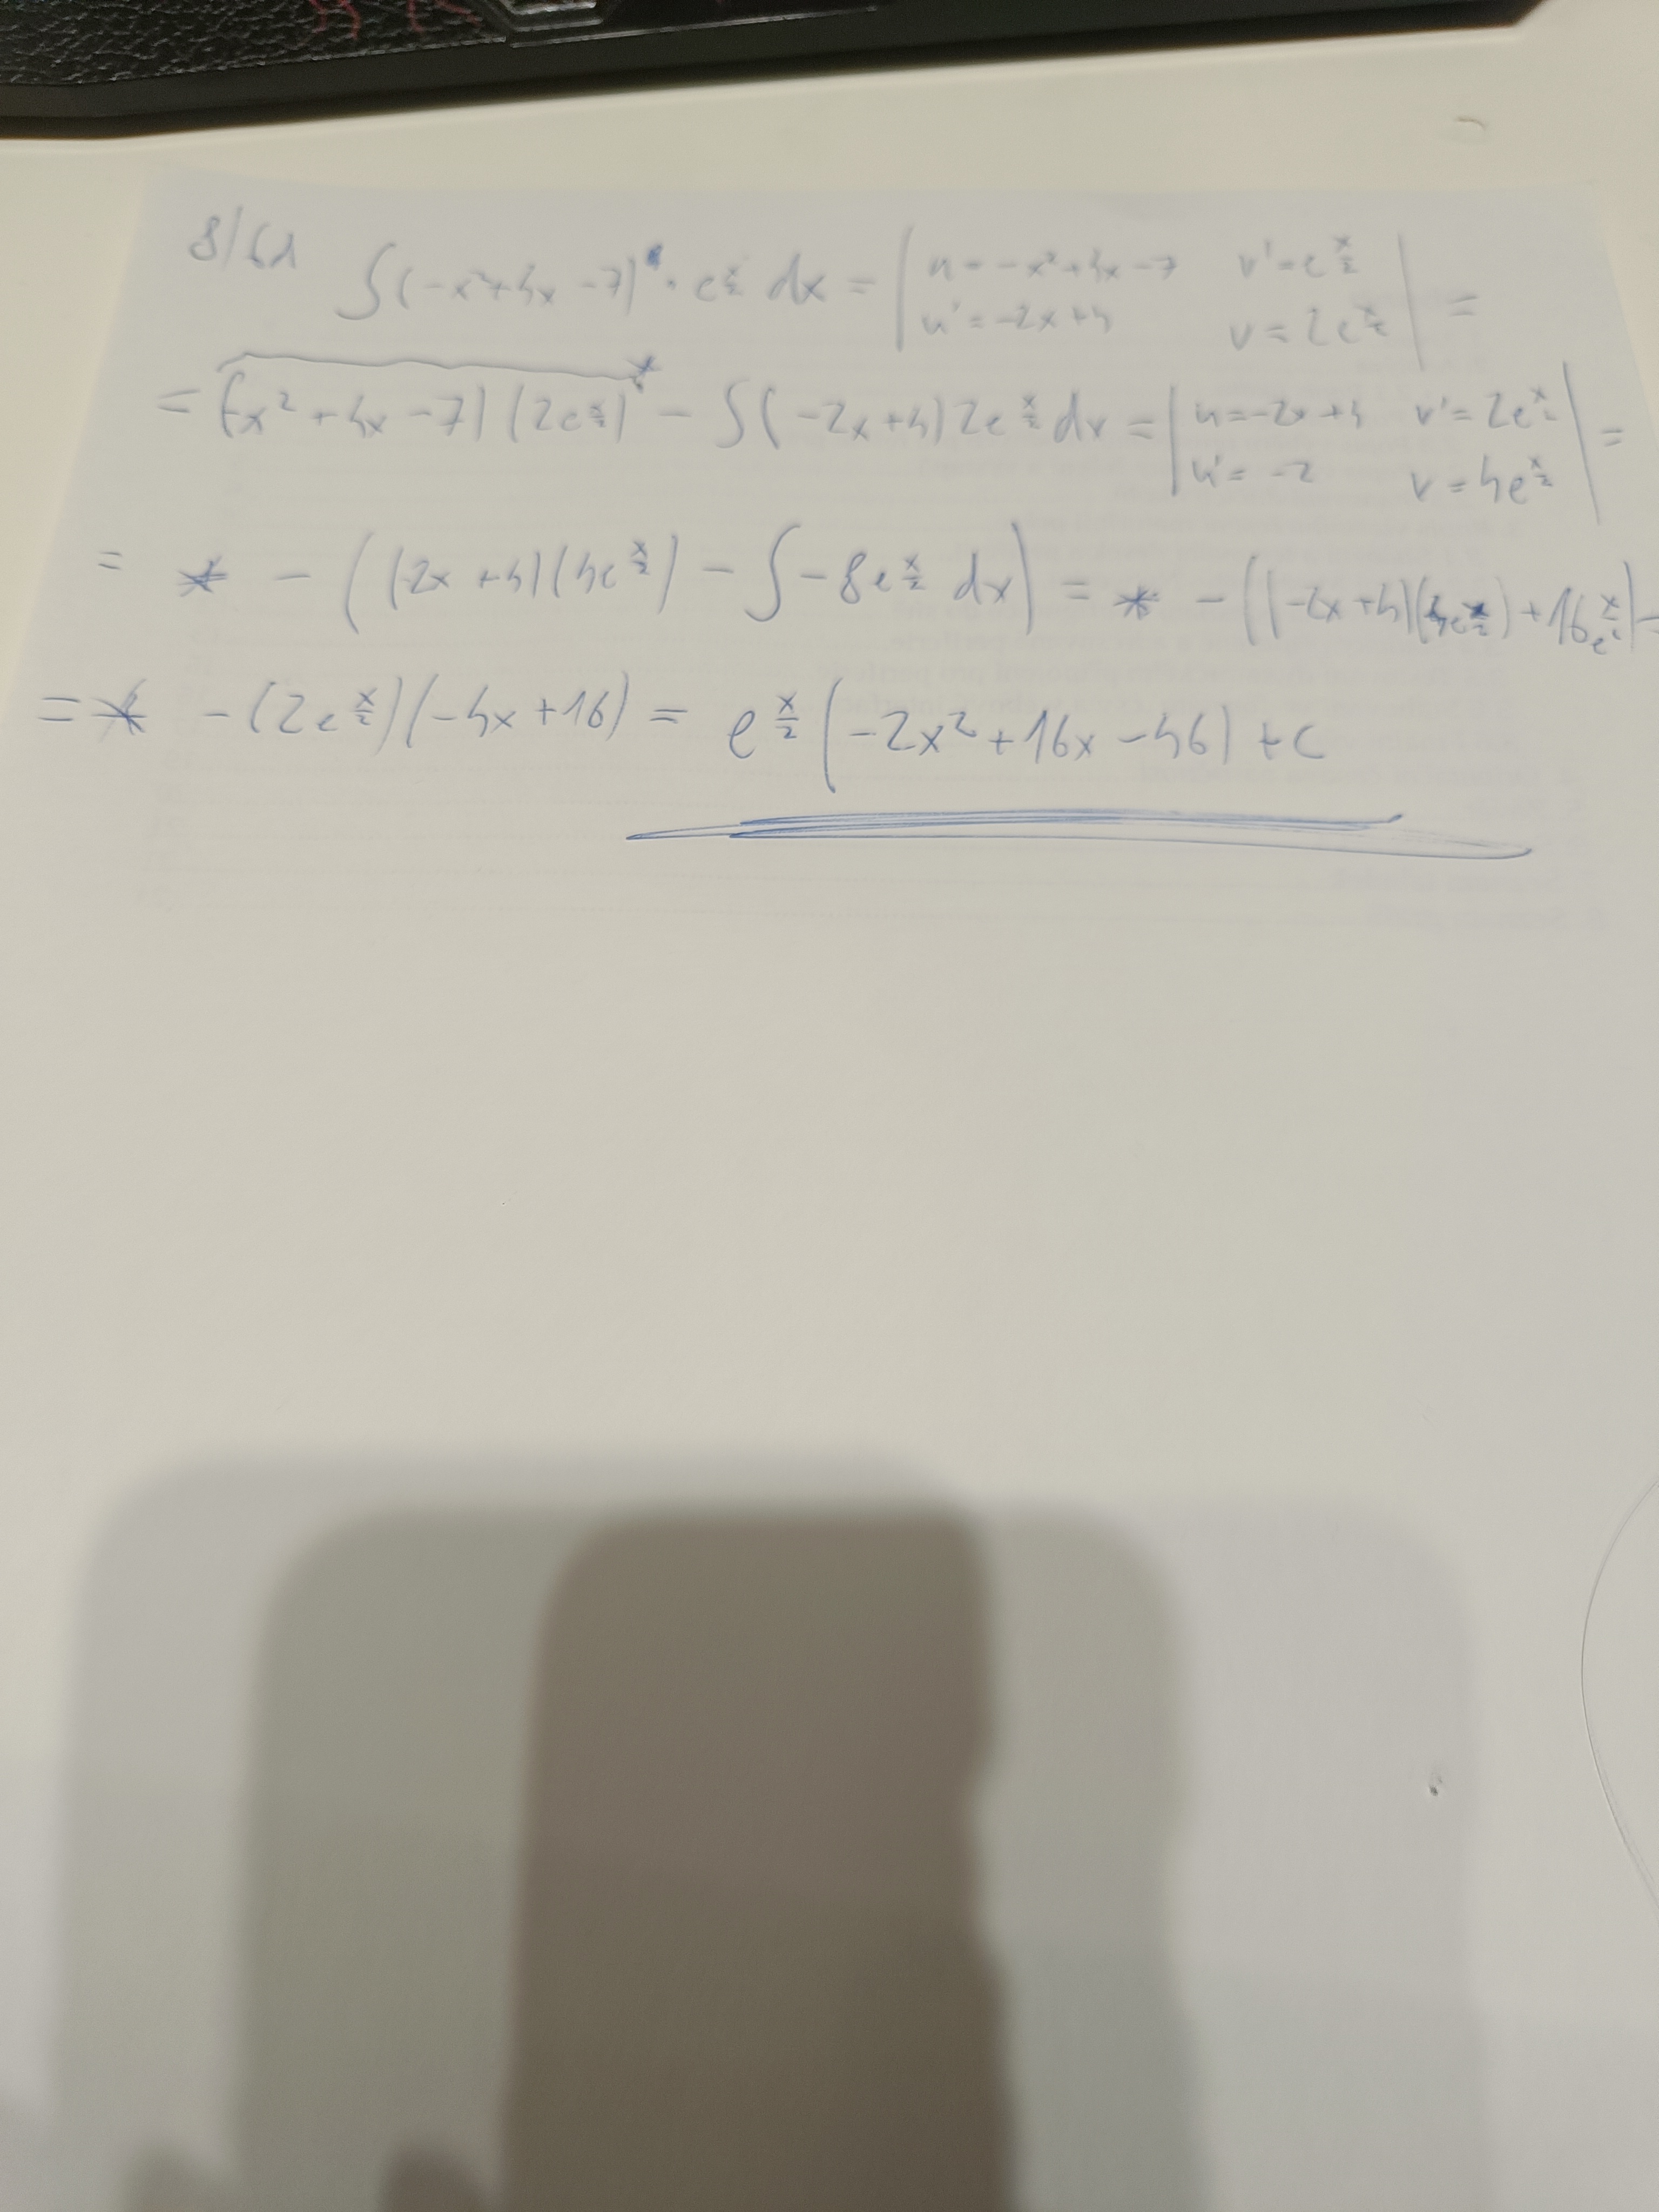 8/61 ∫(-x²+4x-7)·e^(x/2) dx = | u=-x²+4x-7 v'=e^(x/2) u'=-2x+4 v=2e^(x/2) | =
= (-x²+4x-7)(2e^(x/2))* - ∫(-2x+4)2e^(x/2) dx = | u=-2x+4 v'=2e^(x/2) u'=-2 v=4e^(x/2) | =
= * - ((-2x+4)(4e^(x/2)) - ∫-8e^(x/2) dx) = * - ((-2x+4)(4e^(x/2))+16e^(x/2)) =
= * - (2e^(x/2))(-4x+16) = e^(x/2)(-2x²+16x-46)+c